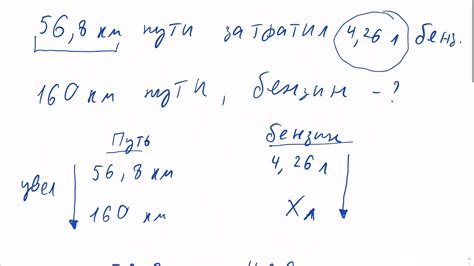 56,8 км пути затратил 4,26 л бенз.
160 км пути, бензин - ?
Путь бензин
увел 56,8 км 4,26 л
160 км X л